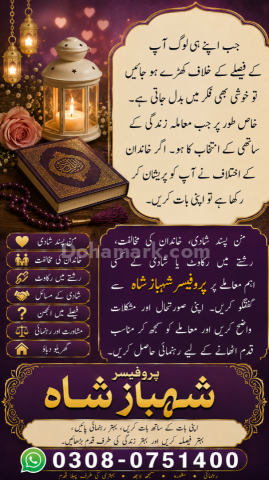 جب اپنے ہی لوگ آپ
کے فیصلے کے خلاف کھڑے ہو جائیں
تو خوشی بھی فکر میں بدل جاتی ہے۔
خاص طور پر جب معاملہ زندگی کے
ساتھی کے انتخاب کا ہو۔ اگر خاندان
کے اختلاف نے آپ کو پریشان کر
رکھا ہے تو اپنی بات کریں۔
من پسند شادی
خاندان کی مخالفت
رشتے میں رکاوٹ
شادی کے مسائل
فیصلے میں الجھن
مشاورت اور رہنمائی
گھریلو دباؤ
من پسند شادی، خاندان کی مخالفت،
رشتے میں رکاوٹ یا شادی کے کسی
اہم معاملے پر پروفیسر شہباز شاہ سے
گفتگو کریں۔ اپنی صورتحال اور مشکلات
واضح کریں اور معاملے کو سمجھ کر مناسب
قدم اٹھانے کے لیے رہنمائی حاصل کریں۔
پروفیسر
شہباز شاہ
اپنی بات کے ساتھ بات کریں، بہتر رہنمائی پائیں،
بہتر فیصلہ کریں اور بہتر زندگی کی طرف قدم بڑھائیں۔
0308-0751400